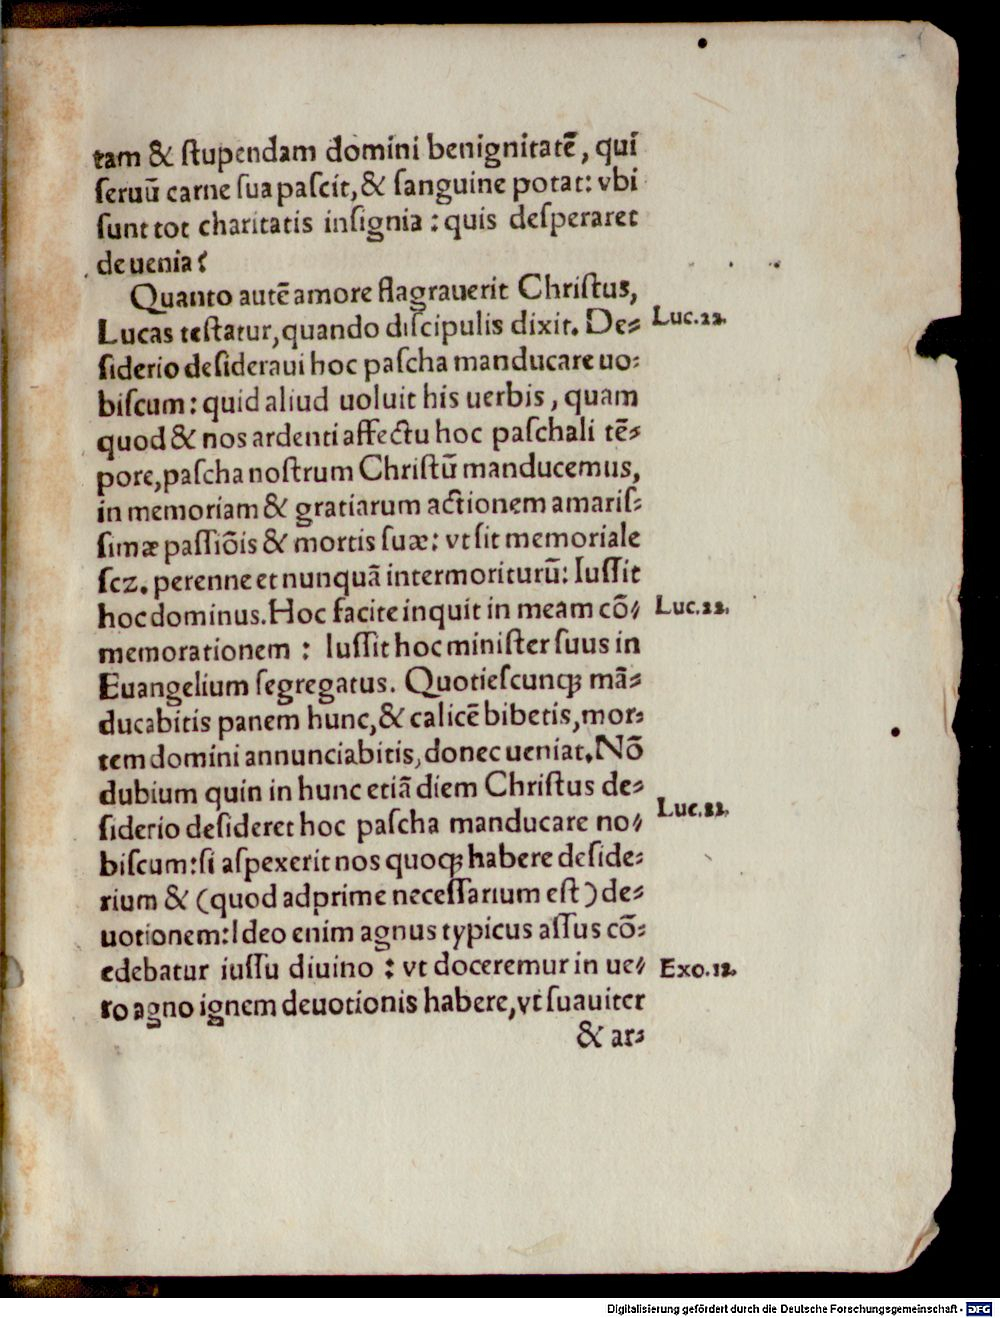 tam & ſtupendam domini benignitatē, qui
ſeruū carne ſua paſcit, & ſanguine potat: vbi
ſunt tot charitatis inſignia : quis deſperaret
de uenia?
Quanto autē amore flagrauerit Chriſtus,
Lucas teſtatur, quando diſcipulis dixit. De⸗ Luc.22.
ſiderio deſideraui hoc paſcha manducare uo⸗
biſcum: quid aliud uoluit his uerbis, quam
quod & nos ardenti affectu hoc paſchali tē⸗
pore, paſcha noſtrum Chriſtū manducemus,
in memoriam & gratiarum actionem amariſ⸗
ſimæ paſſiōis & mortis ſuæ: vt ſit memoriale
ſcz. perenne et nunquā intermoriturū: Iuſſit
hoc dominus. Hoc facite inquit in meam cō⸗ Luc.22.
memorationem : Iuſſit hoc miniſter ſuus in
Euangelium ſegregatus. Quotieſcunqꝫ mā⸗
ducabitis panem hunc, & calicē bibetis, mor⸗
tem domini annunciabitis, donec ueniat. Nō
dubium quin in hunc etiā diem Chriſtus de⸗
ſiderio deſideret hoc paſcha manducare no⸗ Luc.22.
biſcum: ſi aſpexerit nos quoqꝫ habere deſide⸗
rium & (quod adprime neceſſarium eſt) de⸗
uotionem: Ideo enim agnus typicus aſſus cō⸗
edebatur iuſſu diuino : vt doceremur in ue⸗ Exo.12.
ro agno ignem deuotionis habere, vt ſuauiter
& ar⸗
Digitalisierung gefördert durch die Deutsche Forschungsgemeinschaft - DFG